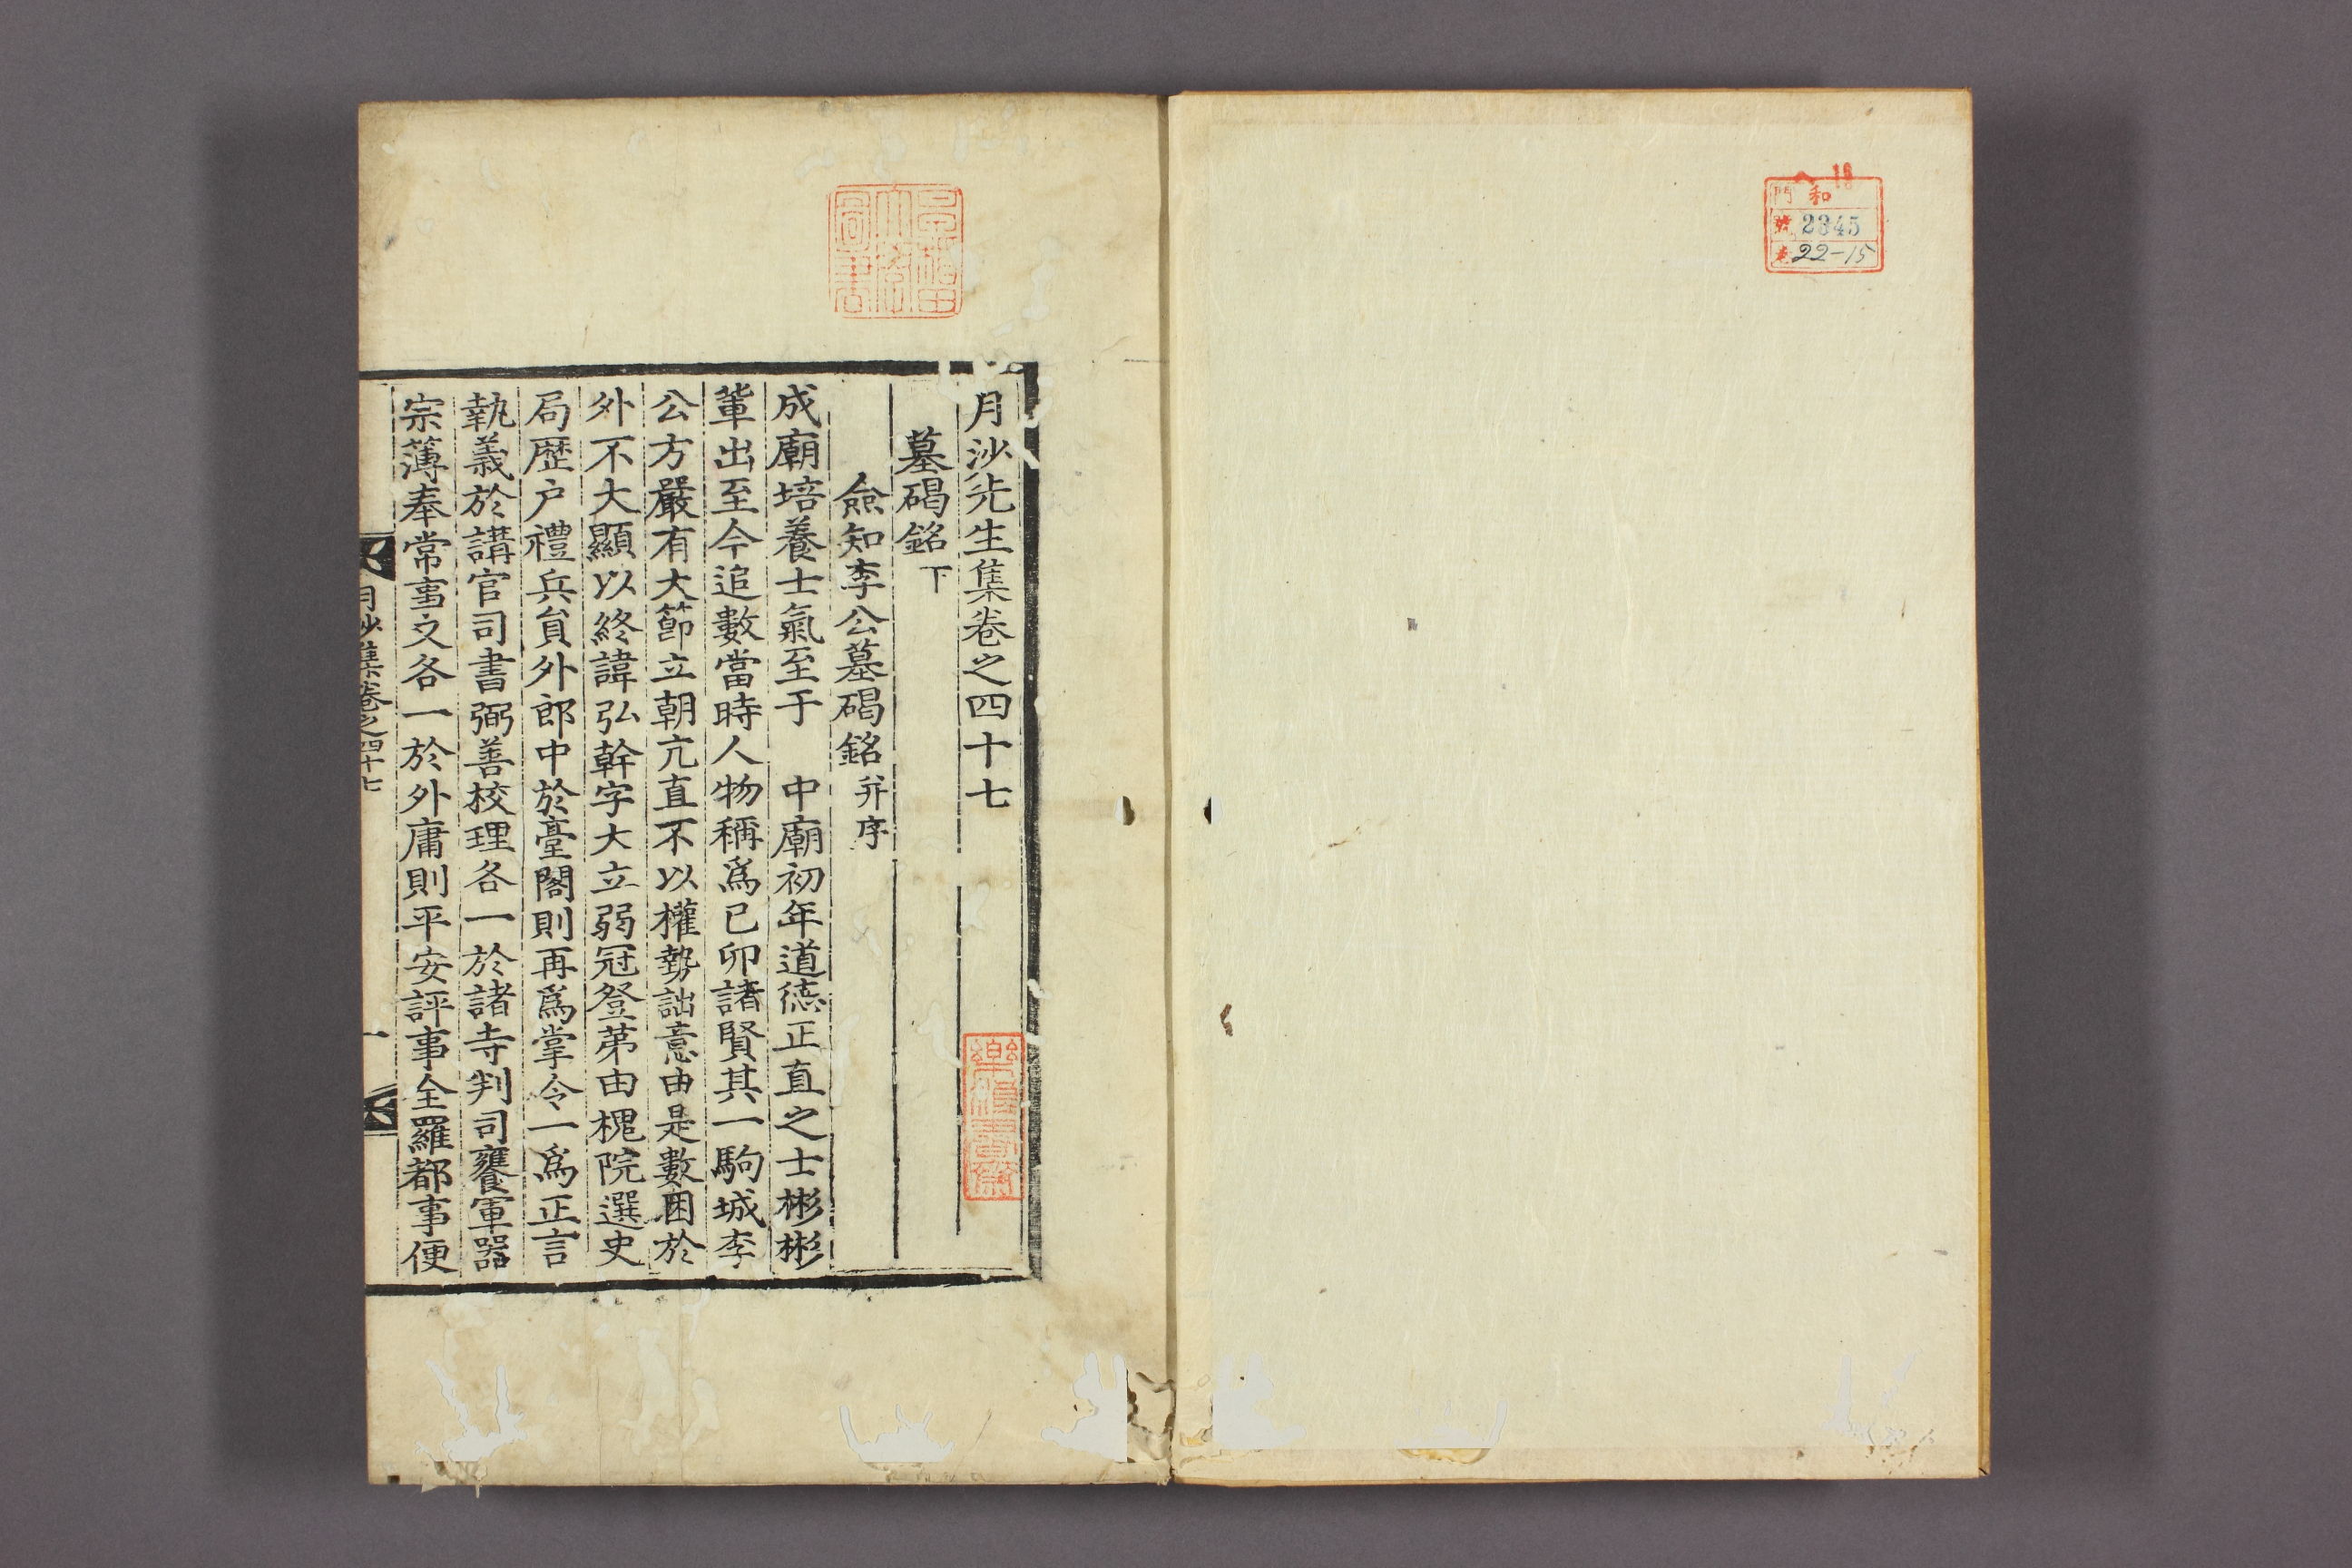 和
門
2345
號
22-15
月沙先生集卷之四十七
墓碣銘下
僉知李公墓碣銘幷序
成廟培養士氣至于 中廟初年道德正直之士彬彬
輩出至今追數當時人物稱爲己卯諸賢其一駒城李
公方嚴有大節立朝亢直不以權勢詘意由是數困於
外不大顯以終諱弘幹字大立弱冠登第由槐院選史
局歷戶禮兵員外郎中於臺閣則再爲掌令一爲正言
執義於講官司書弼善校理各一於諸寺判司饔軍器
宗薄奉常事又各一於外庸則平安評事全羅都事便
月沙集卷之四十七
一